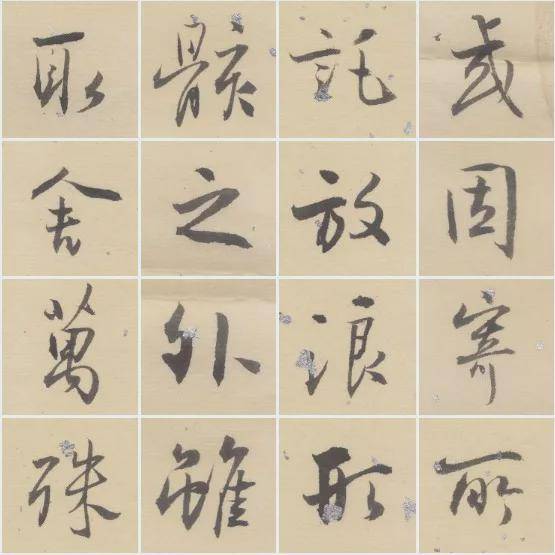 或固寄所
託放浪形
骸之外雖
取舍萬殊